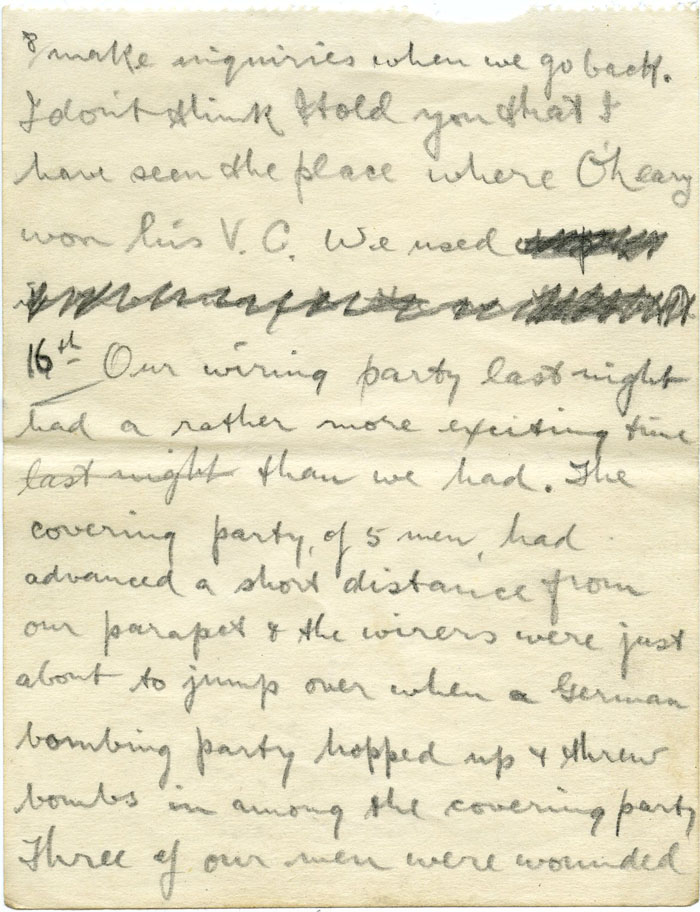 & make inquiries when we go back.
I don't think I told you that I
have seen the place where O'Leary
won his V.C. We used
16th Our wiring party last night
had a rather more exciting time
last night than we had. The
covering party, of 5 men, had
advanced a short distance from
our parapet & the wirers were just
about to jump over when a German
bombing party hopped up & threw
bombs in among the covering party
Three of our men were wounded